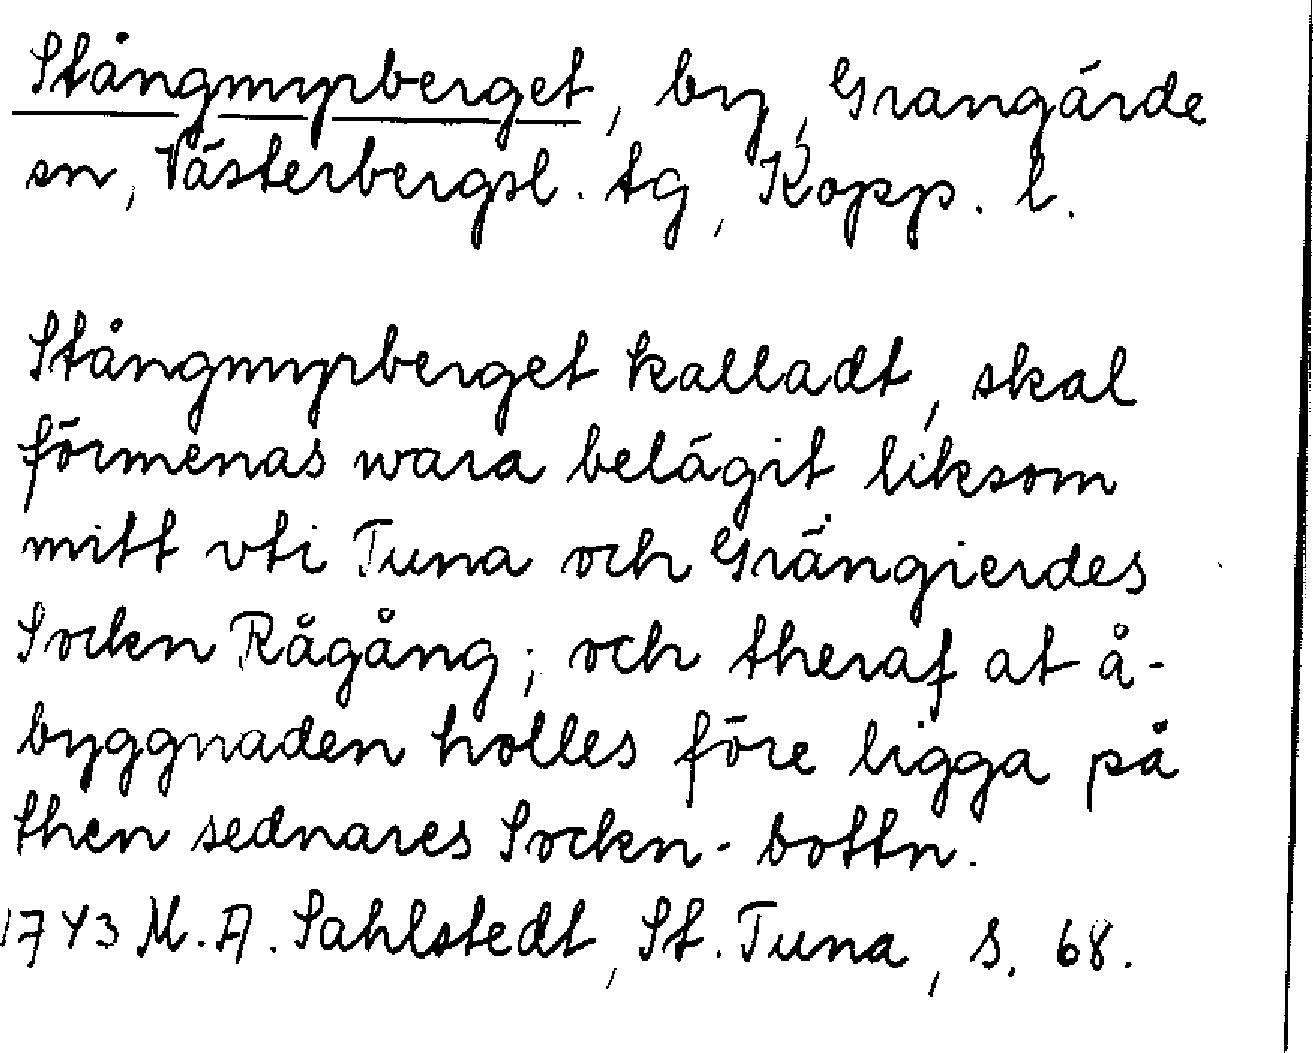 Stångmyrberget, by, Grangärde
sn, Västerbergsl. tg, Kopp. l.
Stångmyrberget kalladt, skal
förmenas wara belägit liksom
mitt vti Tuna och Grängierdes
Sockn Rågång; och theraf at å-
byggnaden holles före ligga på
then sednares Sockn-bottn.
1743 M.A. Sahlstedt, St. Tuna, s. 68.